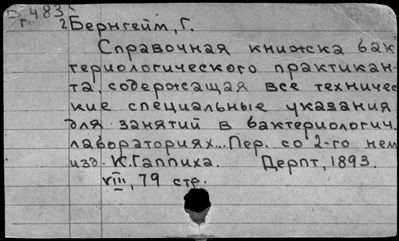 Б 483
г 2 Бернгейм, Г.
Справочная книжка бак
териологического практикан-
та, содержащая все техничес
кие специальные указания
для занятий в бактериологич.
лабораториях... Пер. со 2-го нем
изд. К. Гаппиха. Дерпт, 1893.
VIII, 79 стр.